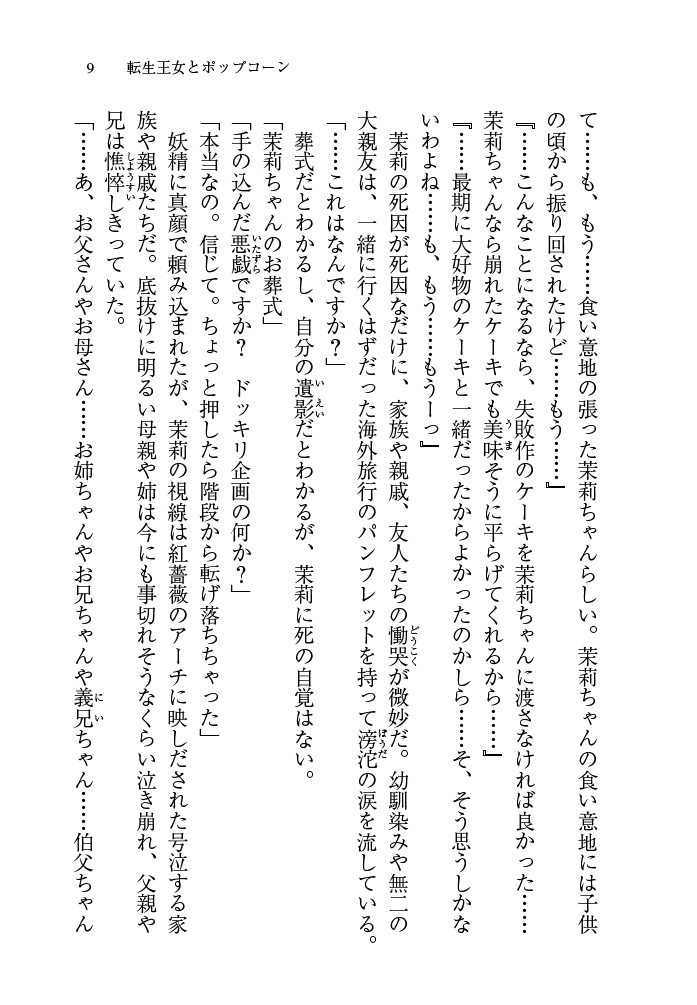 9 転生王女とポップコーン
て……も、もう……食い意地の張った茉莉ちゃんらしい。茉莉ちゃんの食い意地には子供
の頃から振り回されたけど……もう……』
『……こんなことになるなら、失敗作のケーキを茉莉ちゃんに渡さなければ良かった……
茉莉ちゃんなら崩れたケーキでも美味そうに平らげてくれるから……』
『……最期に大好物のケーキと一緒だったからよかったのかしら……そ、そう思うしかな
いわよね……も、もう……もうーっ』
茉莉の死因が死因なだけに、家族や親戚、友人たちの慟哭が微妙だ。幼馴染みや無二の
大親友は、一緒に行くはずだった海外旅行のパンフレットを持って滂沱の涙を流している。
「……これはなんですか？」
葬式だとわかるし、自分の遺影だとわかるが、茉莉に死の自覚はない。
「茉莉ちゃんのお葬式」
「手の込んだ悪戯ですか？　ドッキリ企画の何か？」
「本当なの。信じて。ちょっと押したら階段から転げ落ちちゃった」
妖精に真顔で頼み込まれたが、茉莉の視線は紅薔薇のアーチに映しだされた号泣する家
族や親戚たちだ。底抜けに明るい母親や姉は今にも事切れそうなくらい泣き崩れ、父親や
兄は憔悴しきっていた。
「……あ、お父さんやお母さん……お姉ちゃんやお兄ちゃんや義兄ちゃん……伯父ちゃん